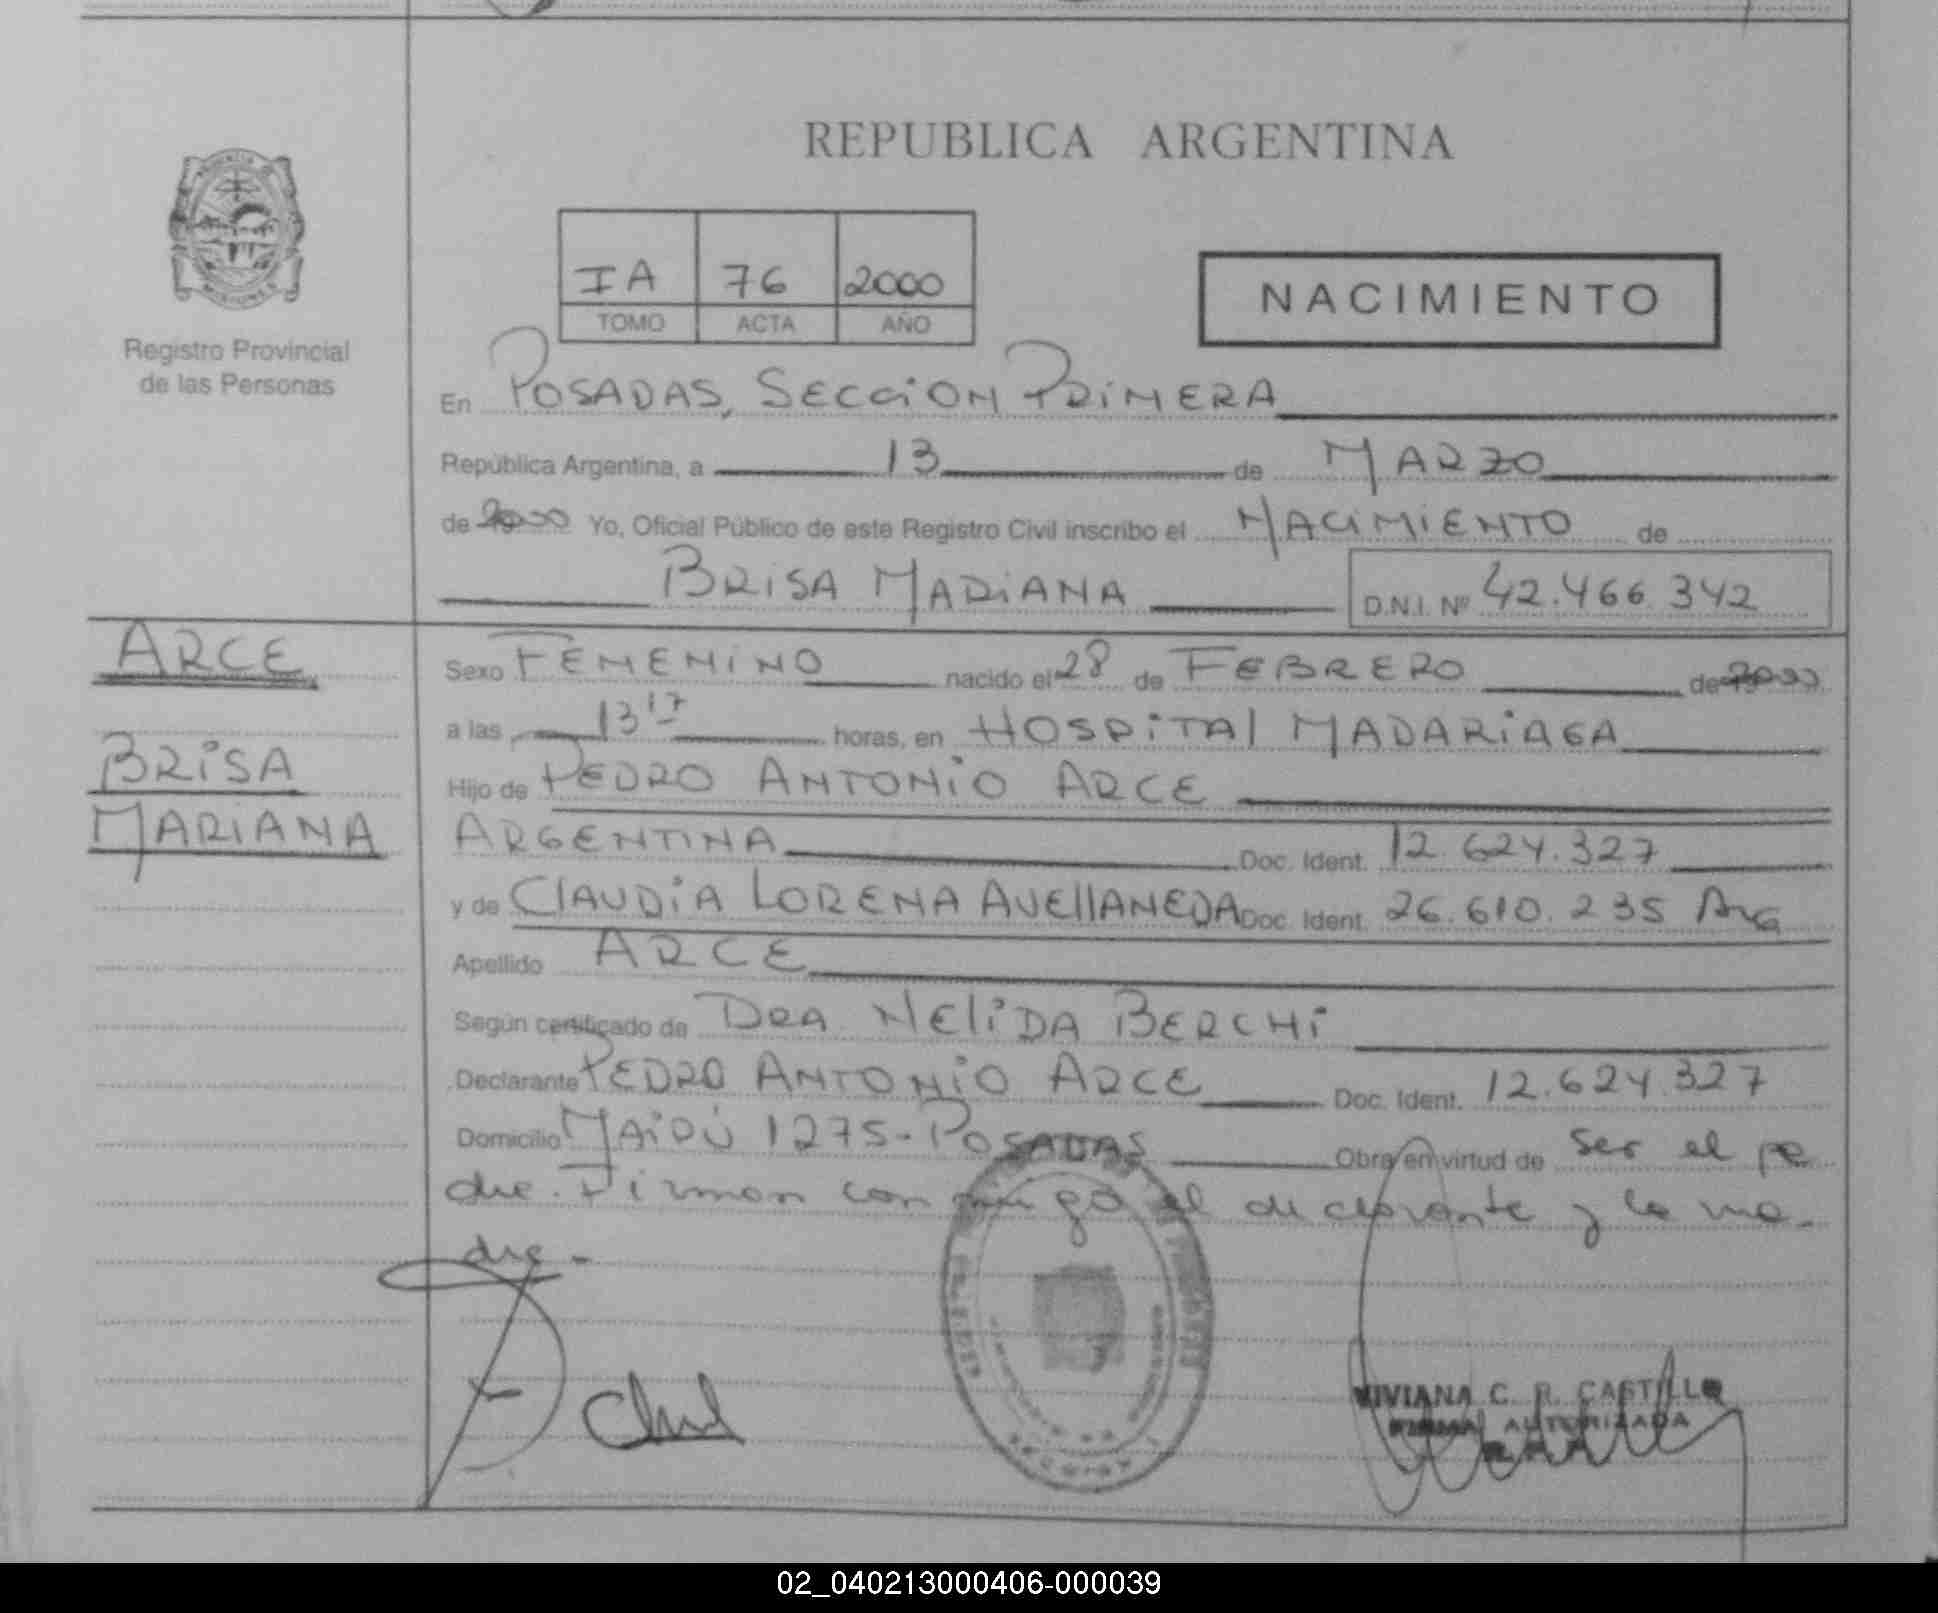 REPUBLICA ARGENTINA
PROVINCIA
MISIONES
Registro Provincial
de las Personas
IA 76 2000
TOMO ACTA AÑO
NACIMIENTO
En POSADAS, SECCION PRIMERA
República Argentina, a 13 de MARZO
de 2000 Yo, Oficial Público de este Registro Civil inscribo el NACIMIENTO de
BRISA MARIANA D.N.I. Nº 42.466.342
ARCE
BRISA
MARIANA
Sexo FEMENINO nacido el 28 de FEBRERO de 2000
a las 13 17 horas, en HOSPITAL MADARIAGA
Hijo de PEDRO ANTONIO ARCE
ARGENTINA Doc. Ident. 12.624.327
y de CLAUDIA LORENA AVELLANEDA Doc. Ident. 26.610.235 ARG
Apellido ARCE
Según certificado de DRA NELIDA BERCHI
Declarante PEDRO ANTONIO ARCE Doc. Ident. 12.624.327
Domicilio MAIPÚ 1275-POSADAS Obra en virtud de ser el pa
dre. Firman conmigo el declarante y la ma-
dre-
VIVIANA C. R. CASTILLO
FIRMA AUTORIZADA
02_040213000406-000039